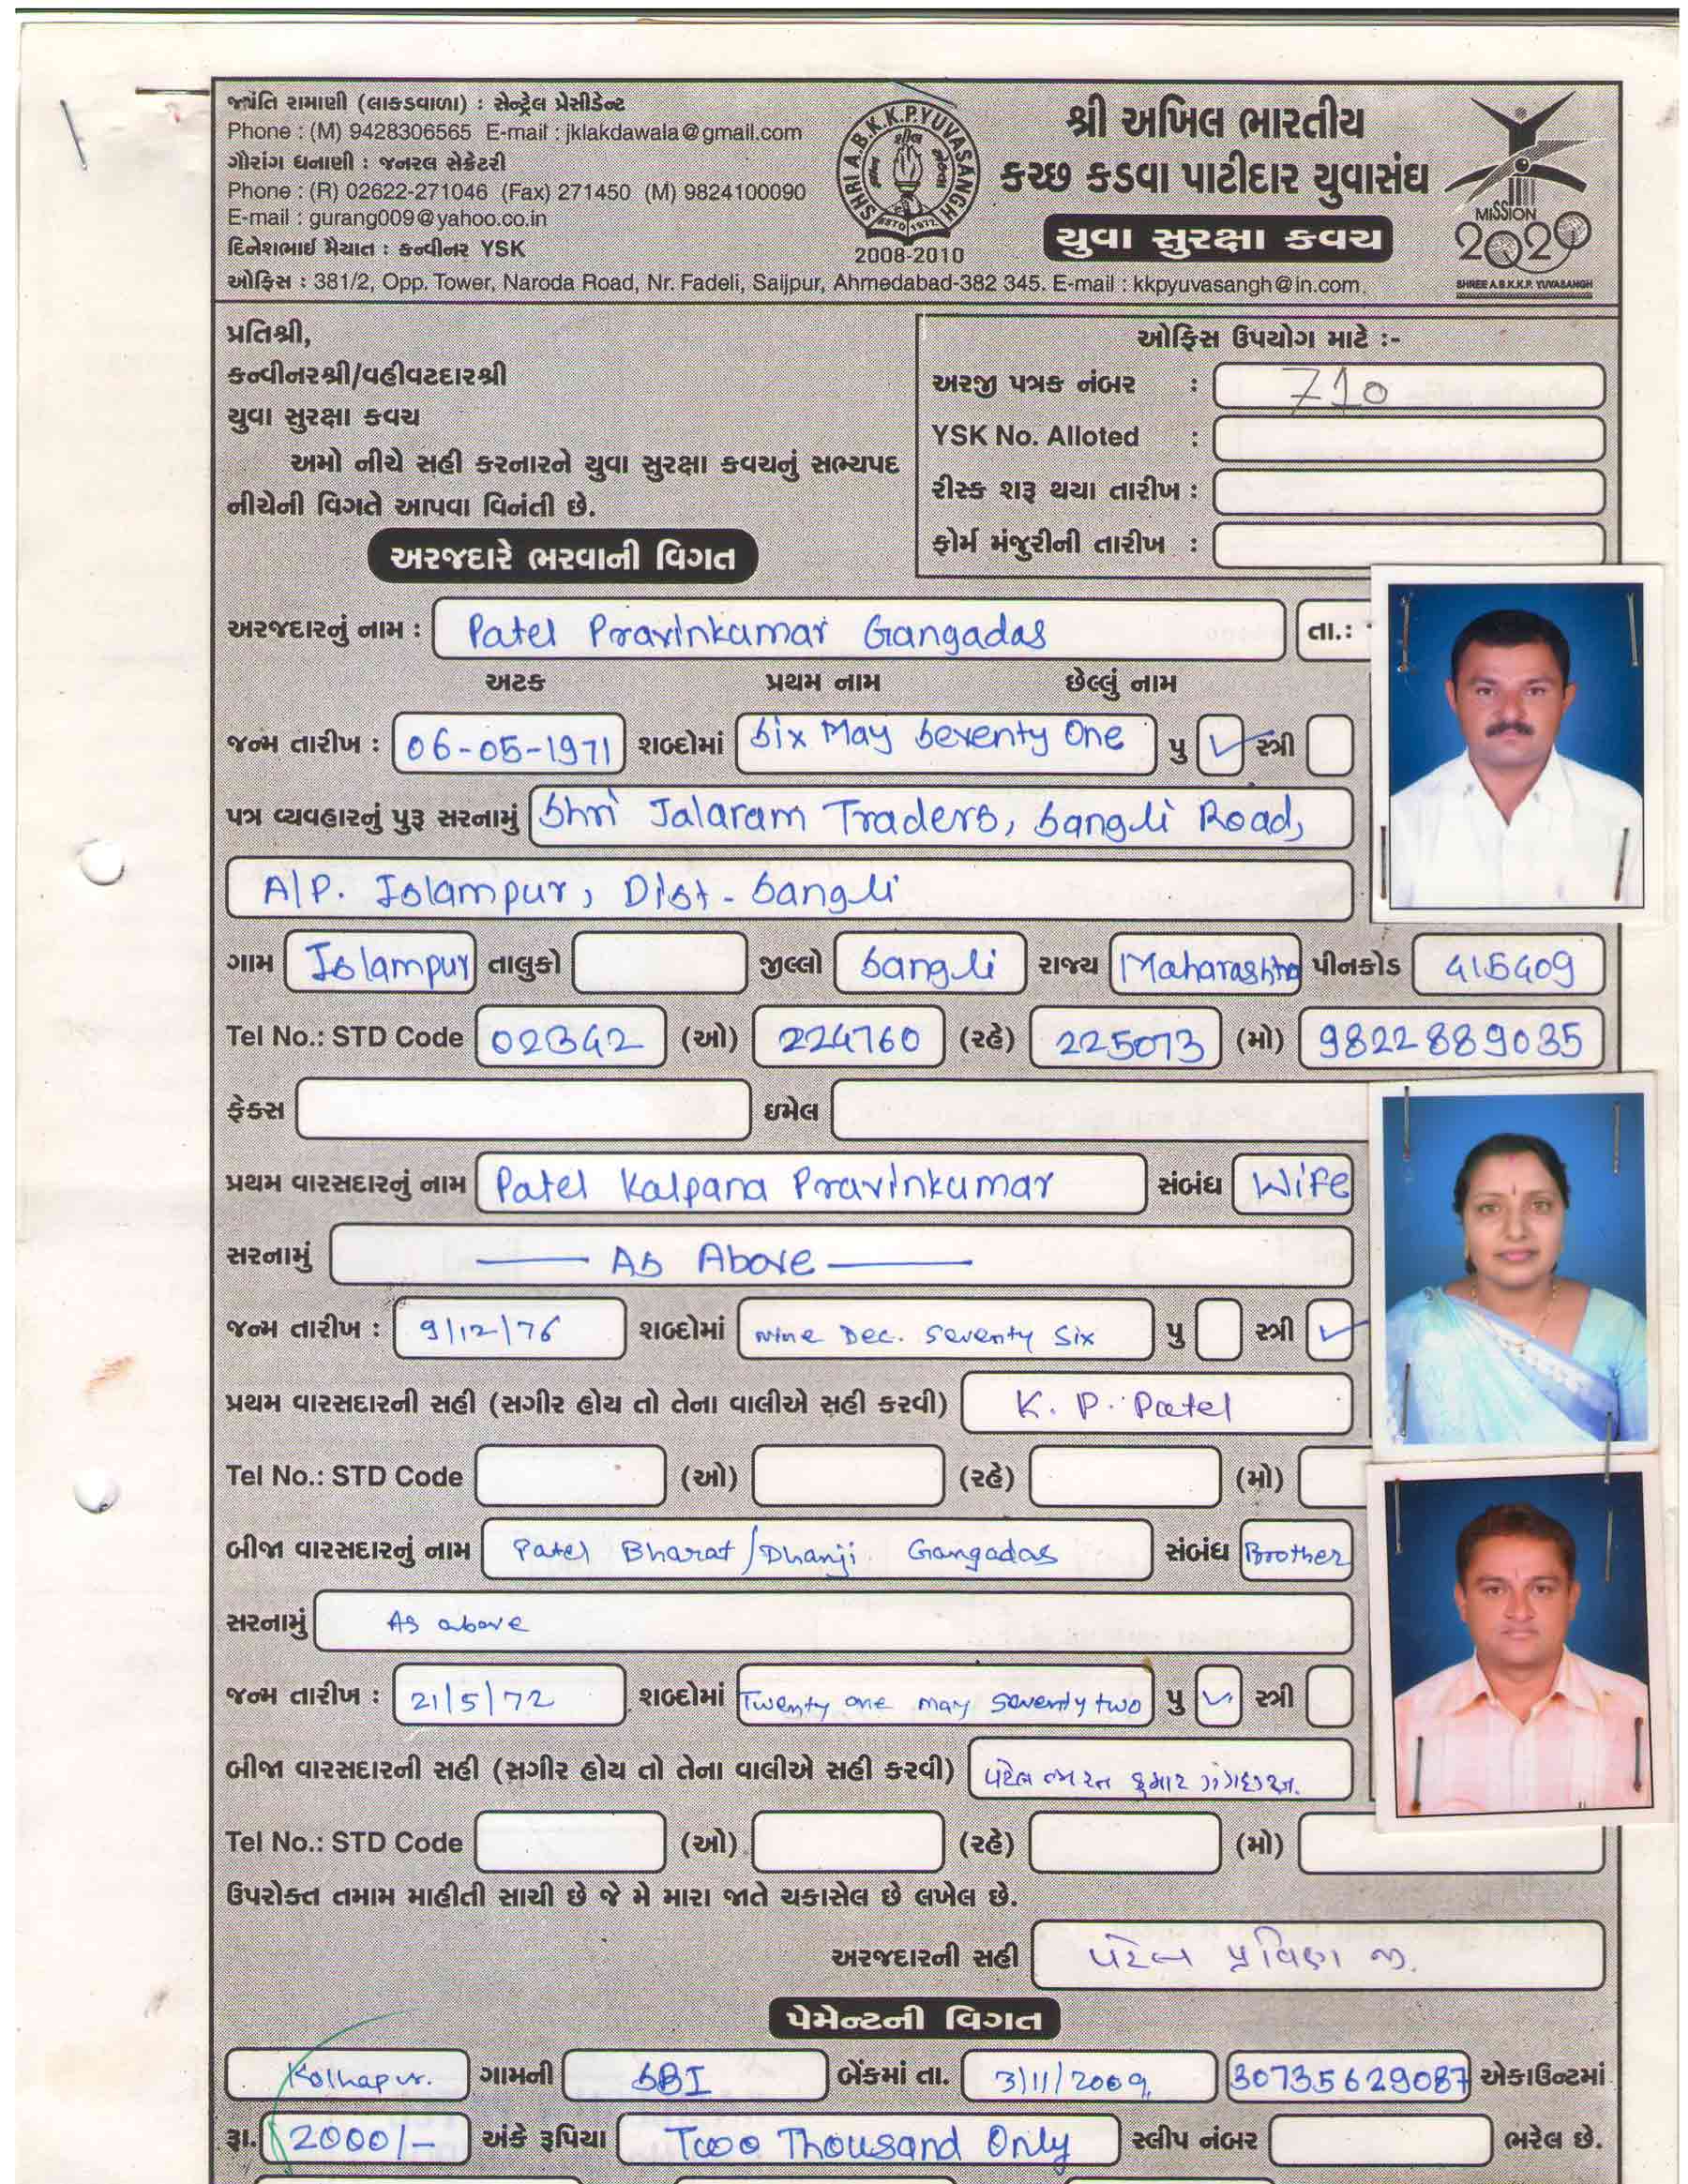 જયંતિ રામાણી (લાકડાવાળા) : સેન્ટ્રેલ પ્રેસીડેન્ટ
Phone : (M) 9428306565 E-mail : jklakdawala@gmail.com
ગૌરાંગ ધનાણી : જનરલ સેક્રેટરી
Phone : (R) 02622-271046 (Fax) 271450 (M) 9824100090
E-mail : gurang009@yahoo.co.in
દિનેશભાઈ મૈયાત : કન્વીનર YSK
ઓફિસ : 381/2, Opp. Tower, Naroda Road, Nr. Fadeli, Saijpur, Ahmedabad-382 345. E-mail : kkpyuvasangh@in.com.
SHRI A.B.K.K.P. YUVASANGH
ESTD 1972
2008-2010
શ્રી અખિલ ભારતીય
કચ્છ કડવા પાટીદાર યુવાસંઘ
યુવા સુરક્ષા કવચ
MISSION
2020
SHREE A.B.K.K.P. YUVASANGH
પ્રતિશ્રી,
કન્વીનરશ્રી/વહીવટદારશ્રી
યુવા સુરક્ષા કવચ
અમો નીચે સહી કરનારને યુવા સુરક્ષા કવચનું સભ્યપદ
નીચેની વિગતે આપવા વિનંતી છે.
ઓફિસ ઉપયોગ માટે :-
અરજી પત્રક નંબર : 710
YSK No. Alloted :
રીસ્ક શરૂ થયા તારીખ :
ફોર્મ મંજુરીની તારીખ :
અરજદારે ભરવાની વિગત
અરજદારનું નામ : Patel Pravinkumar Gangadas તા.:
અટક પ્રથમ નામ છેલ્લું નામ
જન્મ તારીખ : 06-05-1971 શબ્દોમાં Six May Seventy One પુ ✓ સ્ત્રી
પત્ર વ્યવહારનું પુરૂ સરનામું Shri Jalaram Traders, Sangli Road,
A/P. Islampur, Dist - Sangli
ગામ Islampur તાલુકો જીલ્લો Sangli રાજ્ય Maharashtra પીનકોડ 415409
Tel No.: STD Code 02342 (ઓ) 224760 (રહે) 225073 (મો) 9822889035
ફેક્સ ઇમેલ
પ્રથમ વારસદારનું નામ Patel Kalpana Pravinkumar સંબંધ Wife
સરનામું — As Above —
જન્મ તારીખ : 9/12/76 શબ્દોમાં Nine Dec. Seventy Six પુ સ્ત્રી ✓
પ્રથમ વારસદારની સહી (સગીર હોય તો તેના વાલીએ સહી કરવી) K. P. Patel
Tel No.: STD Code (ઓ) (રહે) (મો)
બીજા વારસદારનું નામ Patel Bharat/Dhanji Gangadas સંબંધ Brother
સરનામું As above
જન્મ તારીખ : 21/5/72 શબ્દોમાં Twenty one may Seventy two પુ ✓ સ્ત્રી
બીજા વારસદારની સહી (સગીર હોય તો તેના વાલીએ સહી કરવી) પટેલ ભરત કુમાર ગંગદાસ.
Tel No.: STD Code (ઓ) (રહે) (મો)
ઉપરોક્ત તમામ માહીતી સાચી છે જે મે મારા જાતે ચકાસેલ છે લખેલ છે.
અરજદારની સહી પટેલ પ્રવિણ જી.
પેમેન્ટની વિગત
Kolhapur. ગામની SBI બેંકમાં તા. 3/11/2009 30735629087 એકાઉન્ટમાં
રૂા. 2000/- અંકે રૂપિયા Two Thousand Only સ્લીપ નંબર ભરેલ છે.